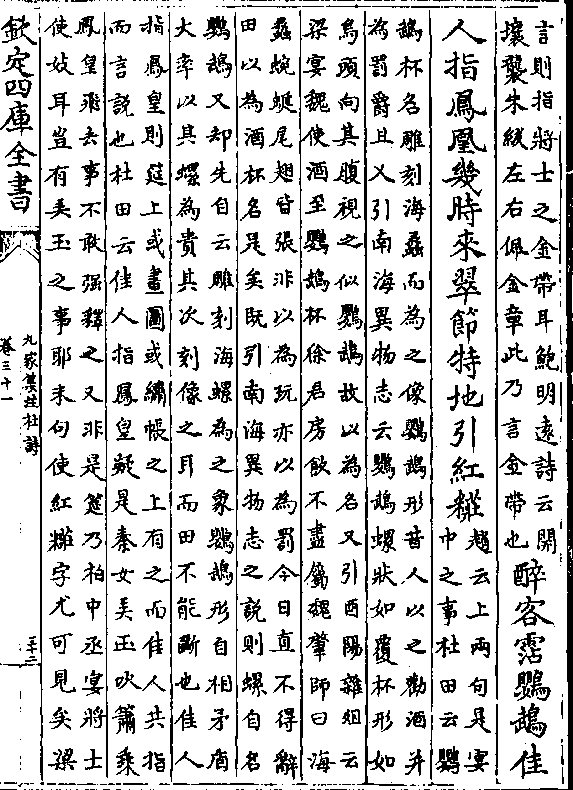 言則指將士之金帶耳鮑明遠詩云開
壤襲朱紱左右佩金章此乃言金帶也
醉客霑鸚鵡佳
人指鳳凰幾時來翠節特地引紅糚
趙云上兩句是宴
中之事杜田云鸚
鵡杯名雕刻海蠡而為之像鸚鵡形昔人以之勸酒并
為罰爵且乂引南海異物志云鸚鵡螺狀如覆杯形如
鳥頭向其腹視之似鸚鵡故以為名又引酉陽雜俎云
梁宴魏使酒至鸚鵡杯徐君房飲不盡屬魏肇師曰海
蠡蜿蜒尾翅皆張非以為玩亦以為罰今日直不得辭
田以為酒杯名是矣既引南海異物志之説則螺自名
鸚鵡又却先自云雕刻海螺為之象鸚鵡形自相矛盾
大率以其螺為貴其次刻像之耳而田不能斷也佳人
指鳳皇則筵上或畫圖或繡帳之上有之而佳人共指
而言説也杜田云佳人指鳳皇疑是秦女美玉吹簫乘
鳳皇飛去事不敢强釋之又非是筵乃柏中丞宴將士
使妓耳豈有美玉之事耶末句使紅糚字尤可見矣梁
欽定四庫全書
九家集註杜詩
卷三十一
三十二